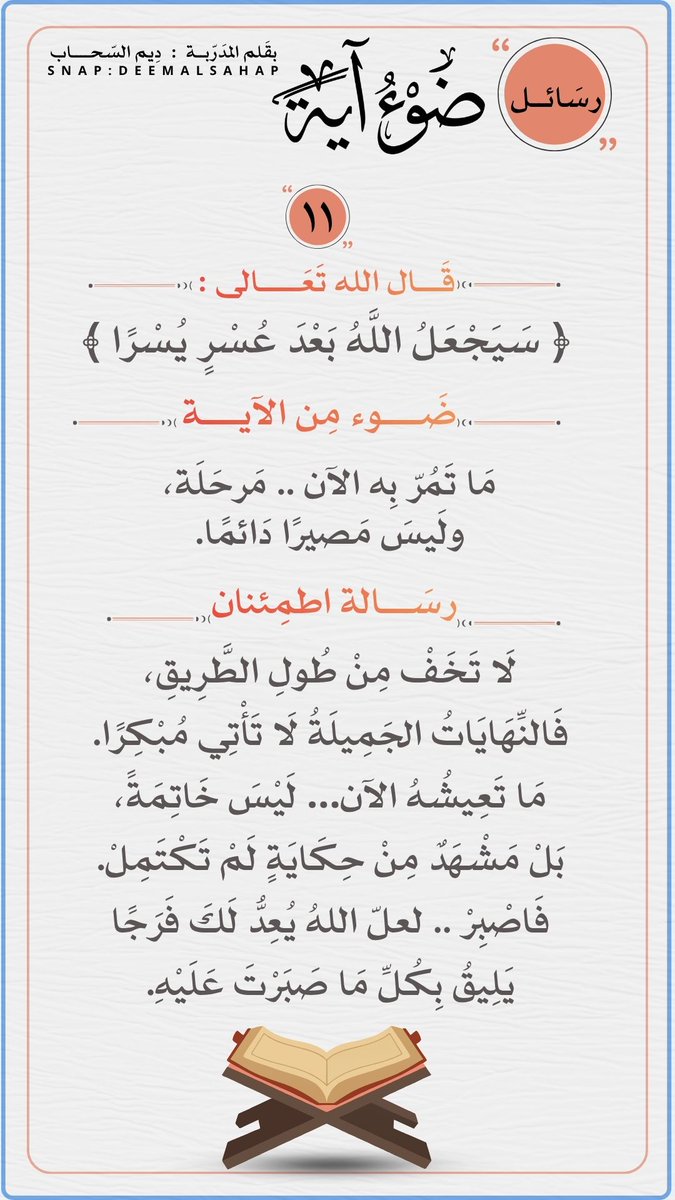 رسَائـل
ضَوْءُ آية
بقَلم المدَرّبـة : دِيم السّحـــاب
SNAP:DEEMALSAHAP
١١
قَـــال الله تَعَـــالى :
﴿ سَيَجْعَلُ اللَّهُ بَعْدَ عُسْرٍ يُسْرًا ﴾
ضَـــوء مِن الآيـــة
مَا تَمُرّ بِه الآن .. مَرحَلَة،
ولَيسَ مَصيرًا دَائمًا.
رسَـــالة اطمِئنان
لَا تَخَفْ مِنْ طُولِ الطَّرِيقِ،
فَالنِّهَايَاتُ الجَمِيلَةُ لَا تَأْتِي مُبْكِرًا.
مَا تَعِيشُهُ الآن... لَيْسَ خَاتِمَةً،
بَلْ مَشْهَدٌ مِنْ حِكَايَةٍ لَمْ تَكْتَمِلْ.
فَاصْبِرْ .. لعلّ اللهُ يُعِدُّ لَكَ فَرَجًا
يَلِيقُ بِكُلِّ مَا صَبَرْتَ عَلَيْهِ.